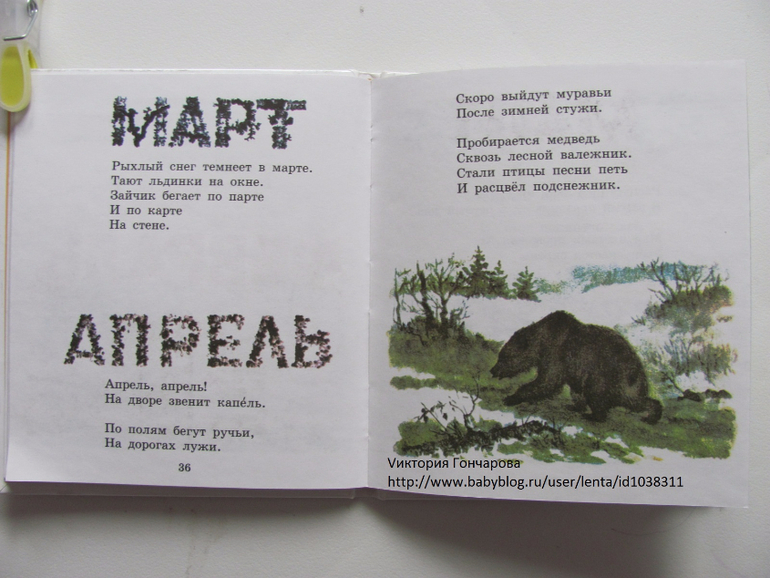 МАРТ
Рыхлый снег темнеет в марте.
Тают льдинки на окне.
Зайчик бегает по парте
И по карте
На стене.
АПРЕЛЬ
Апрель, апрель!
На дворе звенит капе́ль.
По полям бегут ручьи,
На дорогах лужи.
36
Скоро выйдут муравьи
После зимней стужи.
Пробирается медведь
Сквозь лесной валежник.
Стали птицы песни петь
И расцвёл подснежник.
Виктория Гончарова
http://www.babyblog.ru/user/lenta/id1038311